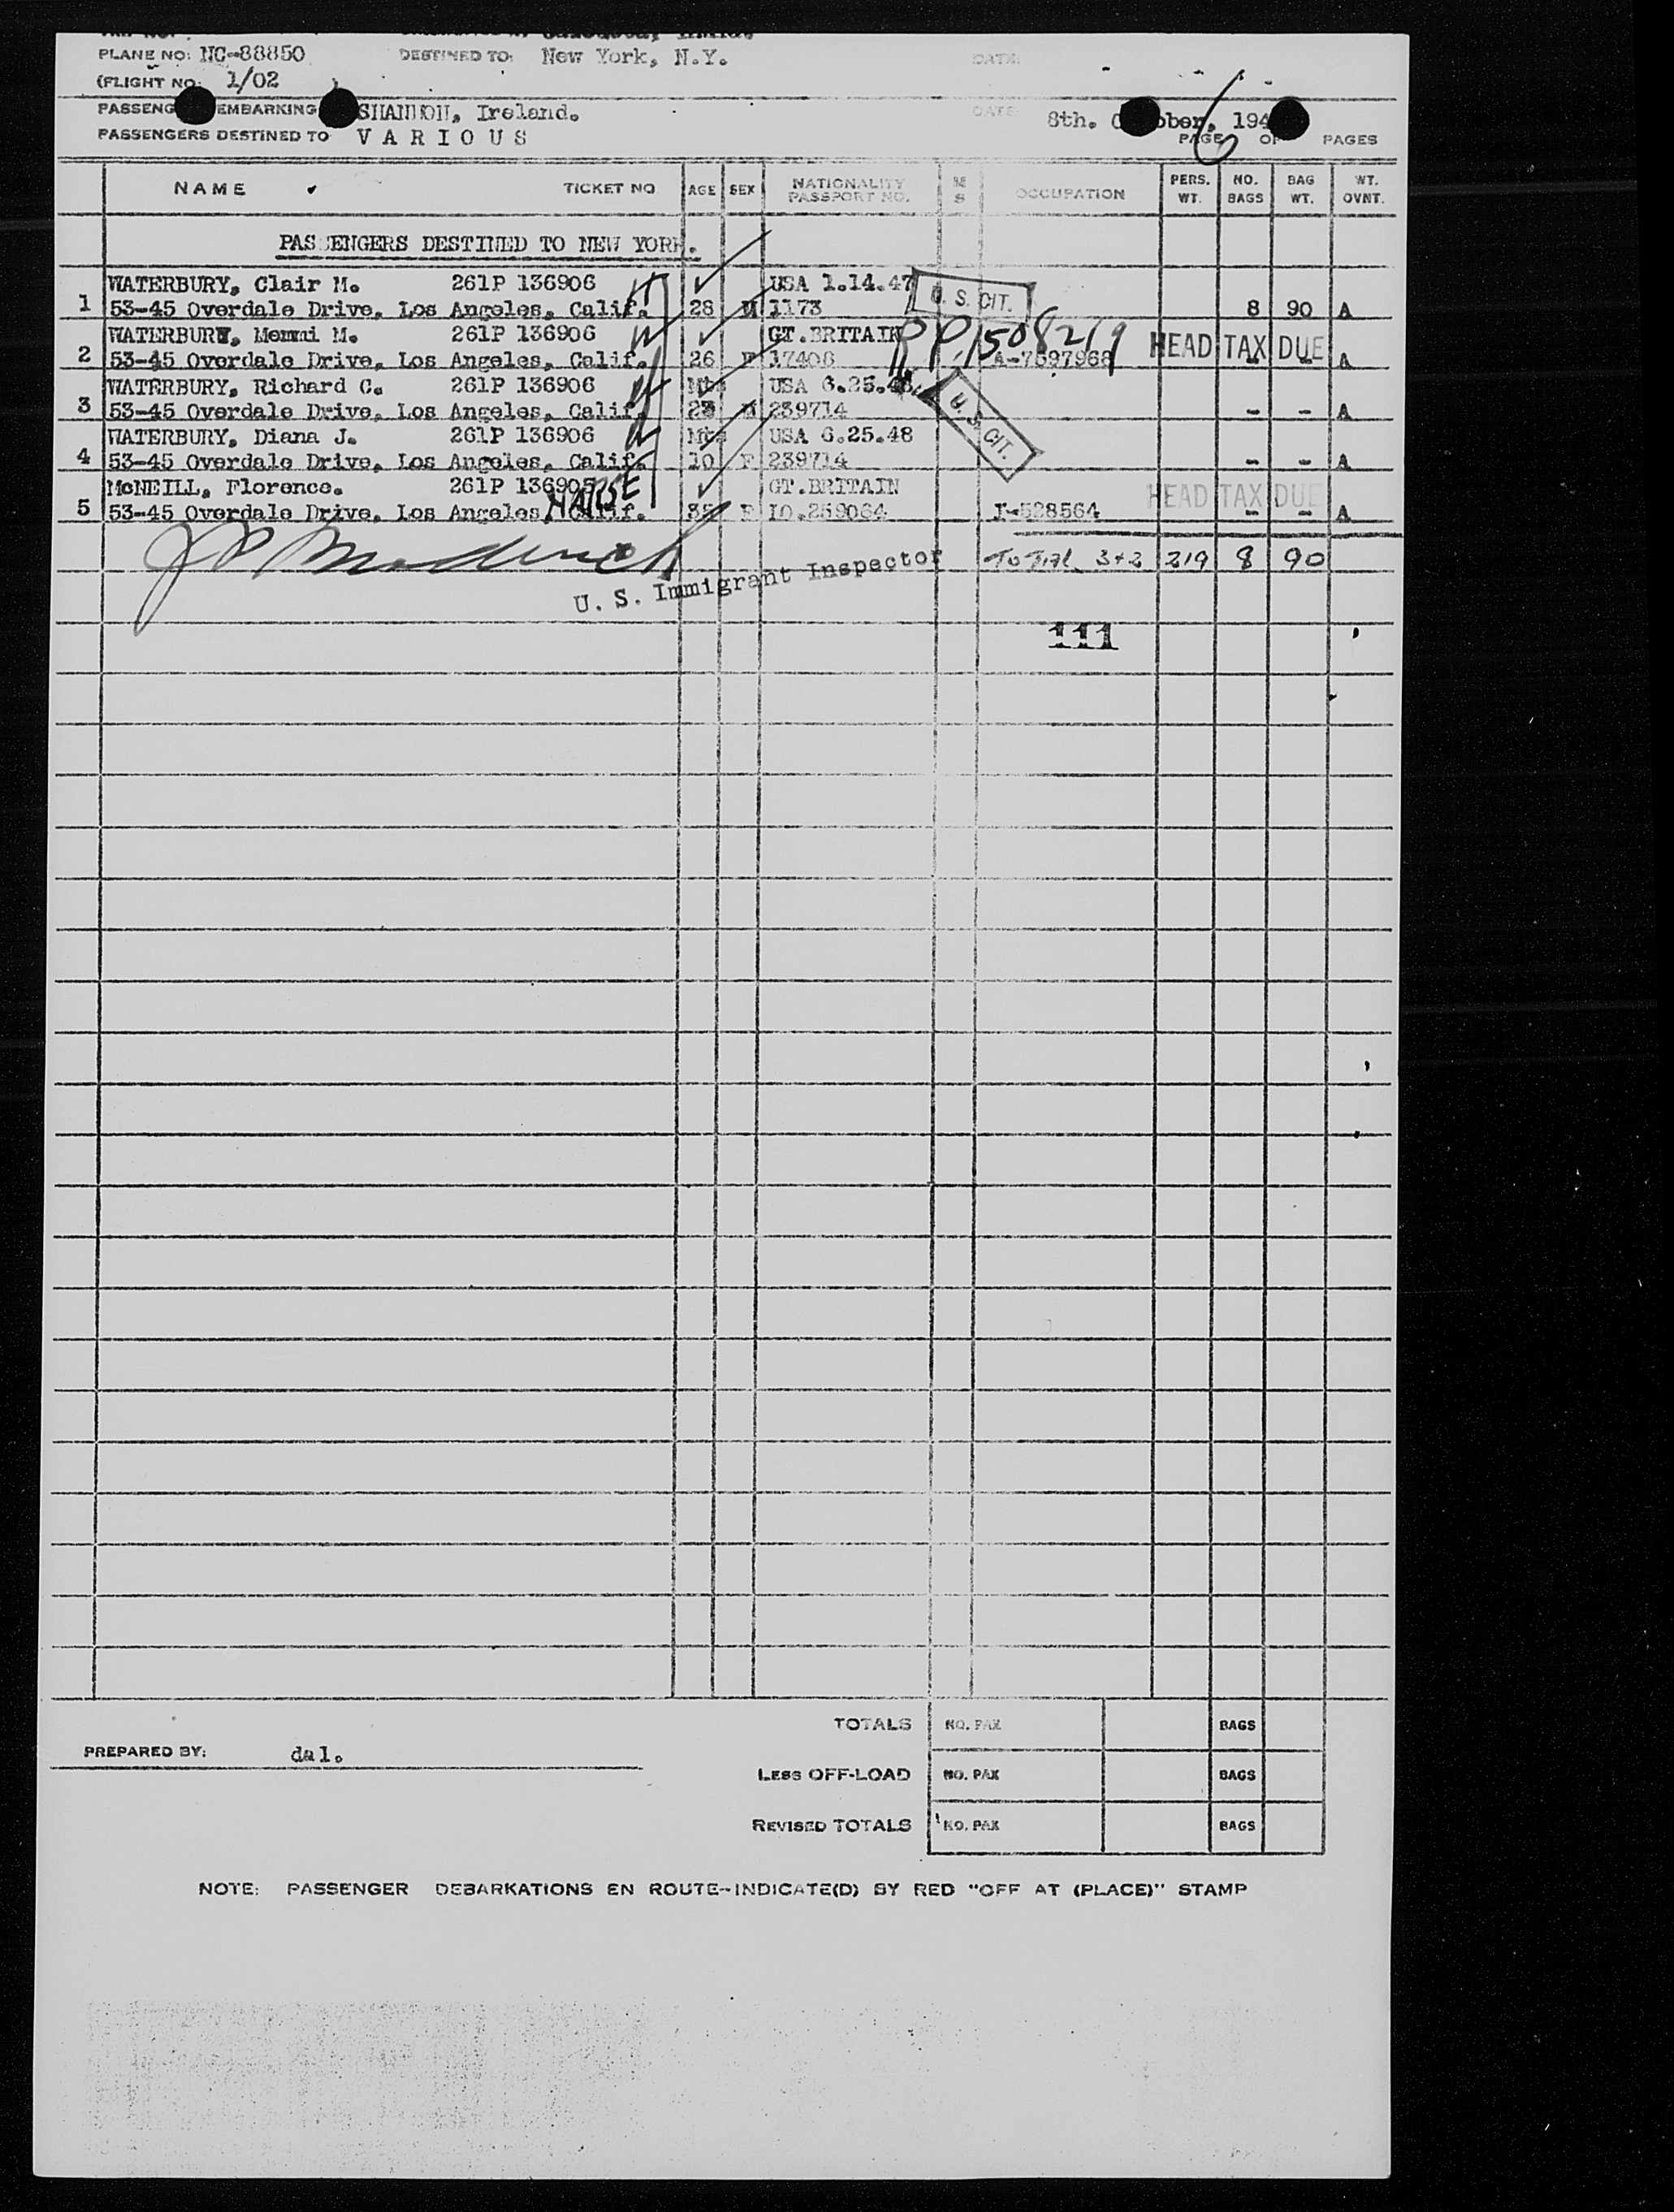 PLANE NO: NC-88850 DESTINED TO: New York, N.Y. DATE:
(FLIGHT NO: 1/02 )
PASSENG EMBARKING SHANNON, Ireland. DATE 8th. October, 194
PASSENGERS DESTINED TO V A R I O U S PAGE 6 OF PAGES
NAME TICKET NO AGE SEX NATIONALITY PASSPORT NO. OCCUPATION PERS. WT. NO. BAGS BAG WT. WT. OVNT.
PASSENGERS DESTINED TO NEW YORK.
WATERBURY, Clair M. 261P 136906 USA 1.14.47 U. S. CIT.
1 53-45 Overdale Drive, Los Angeles, Calif. 28 M 1173 8 90 A
WATERBURY, Memmi M. 261P 136906 GT.BRITAIN PP 1508219 HEAD TAX DUE
2 53-45 Overdale Drive, Los Angeles, Calif. 26 F 17408 A-7597968 - - A
WATERBURY, Richard C. 261P 136906 Mts USA 6.25.48 U. S. CIT.
3 53-45 Overdale Drive, Los Angeles, Calif. 23 M 239714 - - A
WATERBURY, Diana J. 261P 136906 Mts USA 6.25.48
4 53-45 Overdale Drive, Los Angeles, Calif. 10 F 239714 - - A
McNEILL, Florence. 261P 136905 NURSE GT.BRITAIN HEAD TAX DUE
5 53-45 Overdale Drive, Los Angeles, Calif. 35 F IO.259064 I-528564 - - A
U. S. Immigrant Inspector TOTAL 3+2 219 8 90
111
TOTALS NO. PAX BAGS
PREPARED BY: dal.
LESS OFF-LOAD NO. PAX BAGS
REVISED TOTALS NO. PAX BAGS
NOTE: PASSENGER DEBARKATIONS EN ROUTE--INDICATE(D) BY RED "OFF AT (PLACE)" STAMP